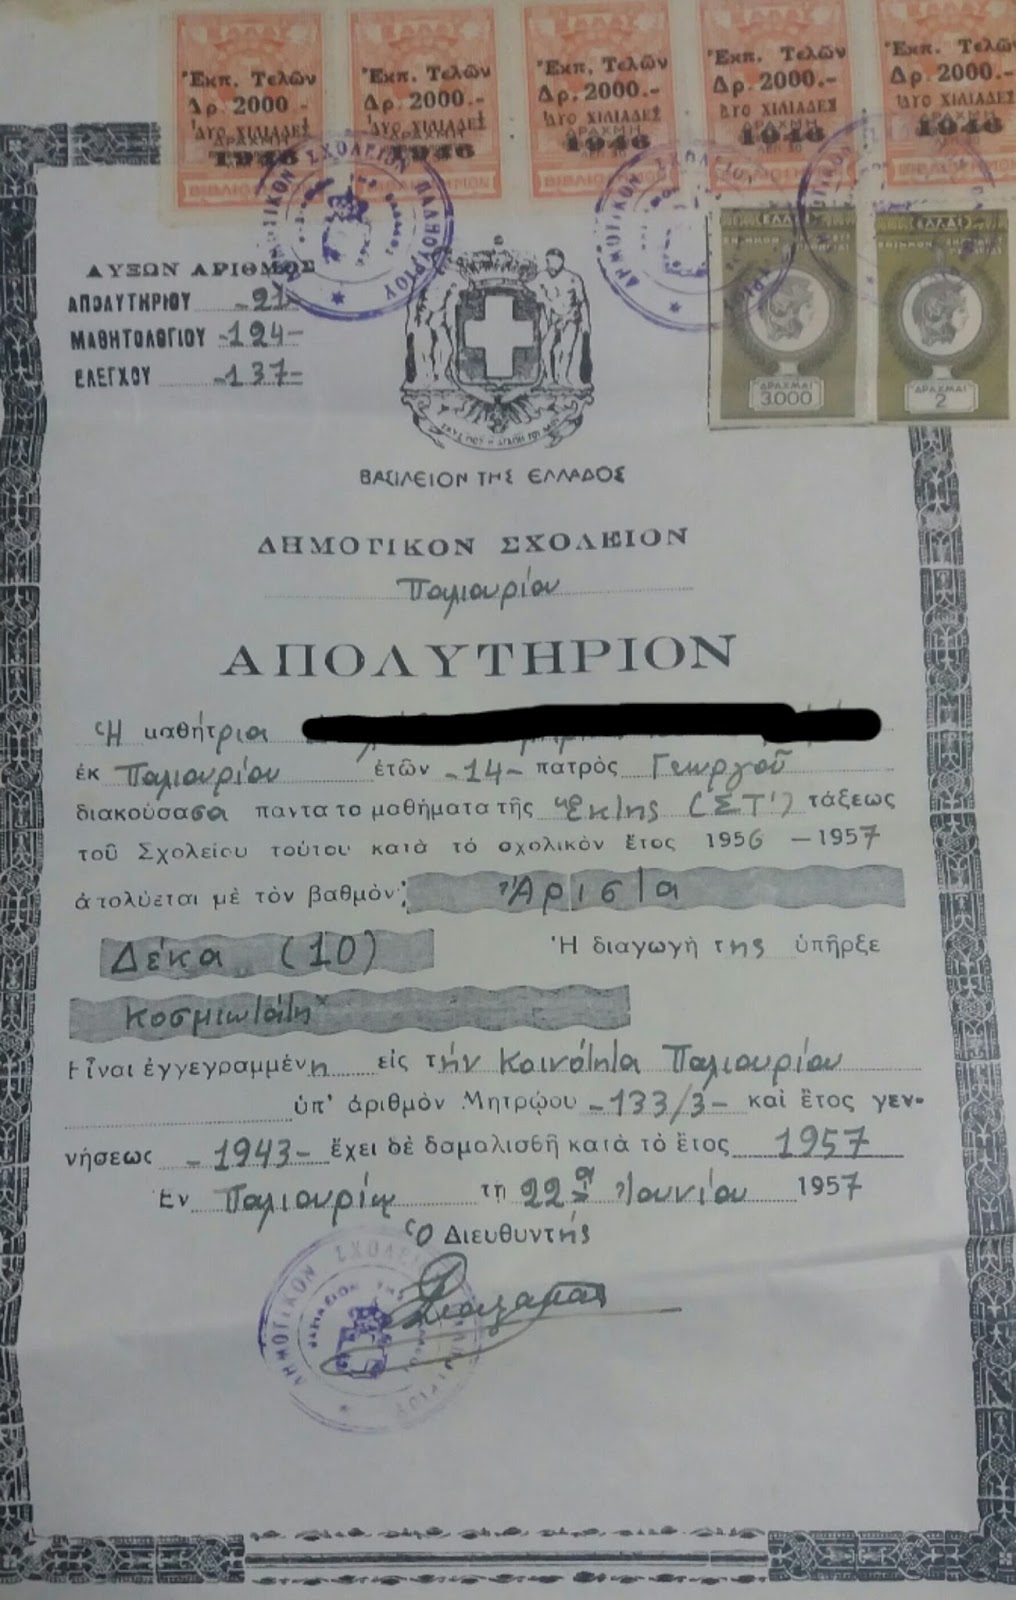 Ἐκπ. Τελῶν Ἐκπ. Τελῶν Ἐκπ. Τελῶν Ἐκπ. Τελῶν Ἐκπ. Τελῶν
Δρ. 2000.- Δρ. 2000.- Δρ. 2000.- Δρ. 2000.- Δρ. 2000.-
ΔΥΟ ΧΙΛΙΑΔΕΣ ΔΥΟ ΧΙΛΙΑΔΕΣ ΔΥΟ ΧΙΛΙΑΔΕΣ ΔΥΟ ΧΙΛΙΑΔΕΣ ΔΥΟ ΧΙΛΙΑΔΕΣ
1946 1946 1946 1946 1946
ΔΗΜΟΤΙΚΟΝ ΣΧΟΛΕΙΟΝ ΠΑΛΗΟΥΡΙΟΥ
ΕΛΛΑΣ ΕΛΛΑΣ
ΔΡΑΧΜΑΙ ΔΡΑΧΜΑΙ
3.000 2
ΑΥΞΩΝ ΑΡΙΘΜΟΣ
ΑΠΟΛΥΤΗΡΙΟΥ -21-
ΜΑΘΗΤΟΛΟΓΙΟΥ -194-
ΕΛΕΓΧΟΥ -137-
ΒΑΣΙΛΕΙΟΝ ΤΗΣ ΕΛΛΑΔΟΣ
ΔΗΜΟΤΙΚΟΝ ΣΧΟΛΕΙΟΝ
Παλιουρίου
ΑΠΟΛΥΤΗΡΙΟΝ
Ἡ μαθήτρια
ἐκ Παλιουρίου ἐτῶν -14- πατρὸς Γεωργοῦ
διακούσασα παντα το μαθήματα τῆς Ἕκτης (ΣΤ') τάξεως
τοῦ Σχολείου τούτου κατὰ τὸ σχολικὸν ἔτος 1956 - 1957
ἀπολύεται μὲ τὸν βαθμὸν: Ἄριστα
Δέκα (10) Ἡ διαγωγή της ὑπῆρξε
κοσμιωτάτη
Εἶναι ἐγγεγραμμένη εἰς τήν Κοινότητα Παλιουρίου
ὑπ' ἀριθμὸν Μητρῴου -133/3- καὶ ἔτος γεν-
νήσεως -1943- ἔχει δὲ δαμαλισθῆ κατὰ τὸ ἔτος 1957
Ἐν Παλιουρίῳ τῃ 22ᾳ Ἰουνίου 1957
Ὁ Διευθυντής
ΔΗΜΟΤΙΚΟΝ ΣΧΟΛΕΙΟΝ ΠΑΛΗΟΥΡΙΟΥ